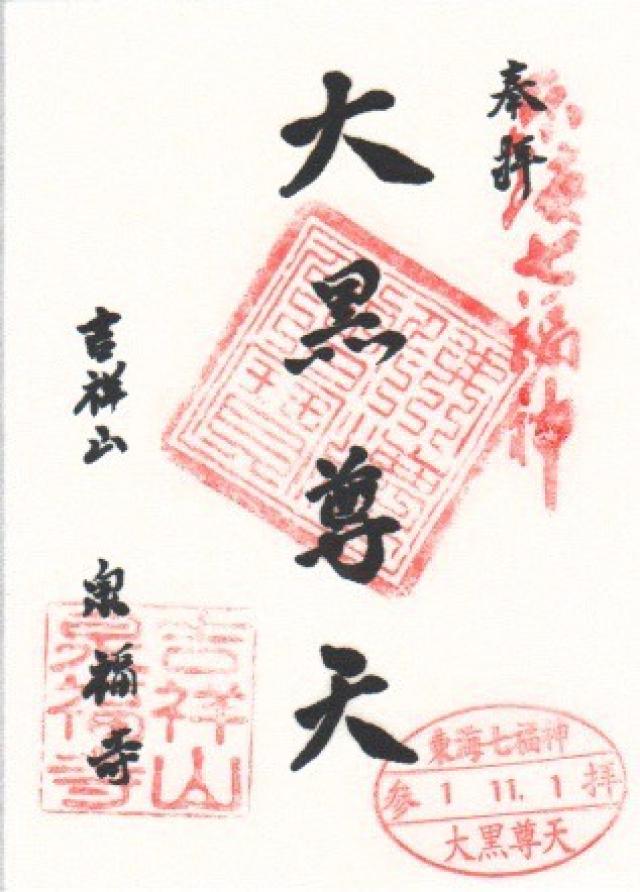 奉拝
東海七福神
大黒尊天
吉祥山 泉福寺
吉祥山
泉福寺
東海七福神
参 1 11. 1 拝
大黒尊天